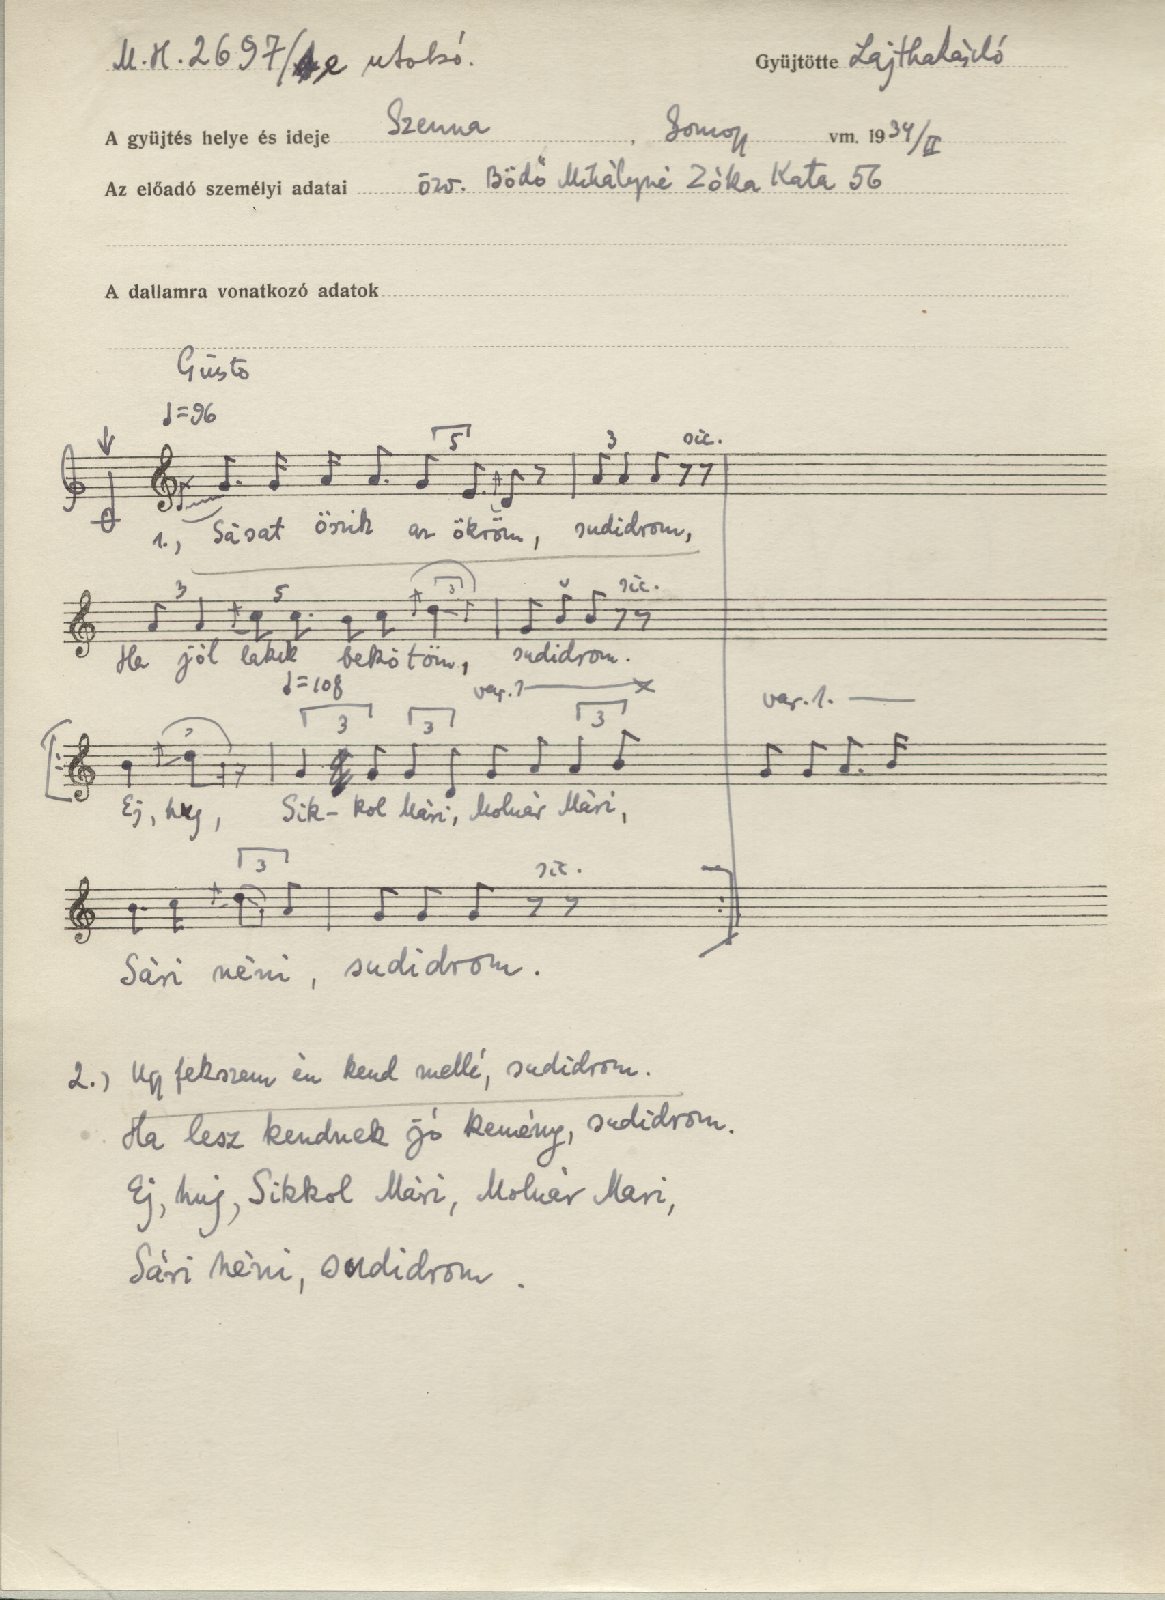 M.H. 2697/e utolsó. Gyüjtötte Lajtha László
A gyüjtés helye és ideje Szenna, Somogy vm. 1934/II
Az előadó személyi adatai özv. Bödő Mihályné Zóka Kata 56
A dallamra vonatkozó adatok
Giusto
♩=96
5 3 sic.
1., Sásat öszik az ökröm, sudidrom,
3 5 3 sic.
Ha jól lakik bekötöm, sudidrom.
♩=108 var.1 var.1.
3 3 3
Ej, huj, Sik-kol Mári, Molnár Mári,
3 sic.
Sári néni, sudidrom.
2.) Ugy fekszem én kend mellé, sudidrom.
Ha lesz kendnek jó kemény, sudidrom.
Ej, huj, Sikkol Mári, Molnár Mari,
Sári néni, sudidrom.